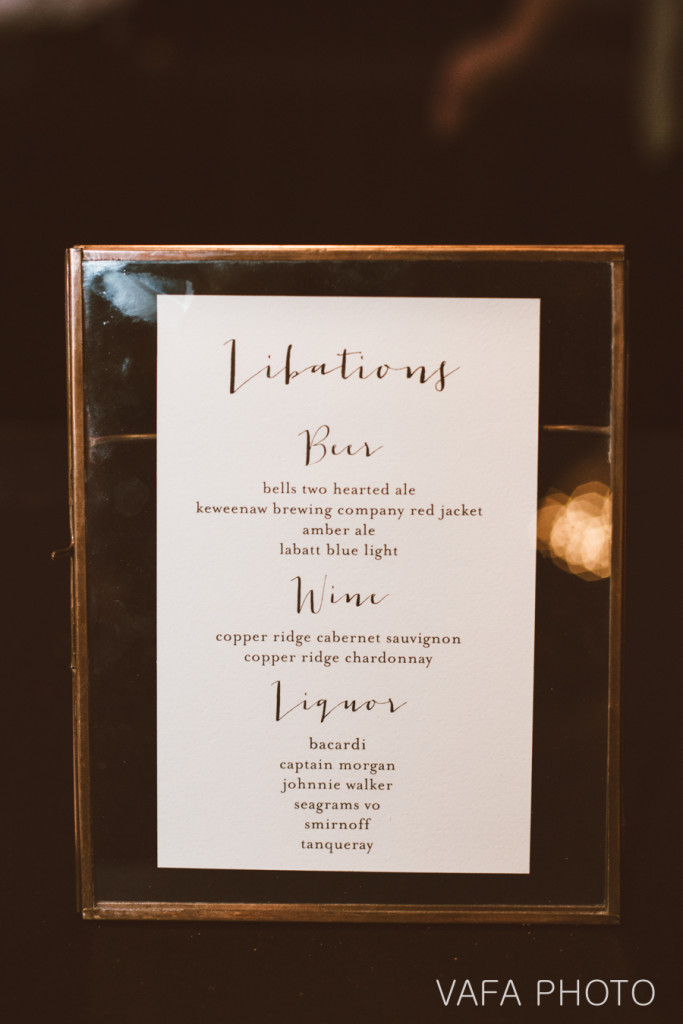 Libations
Beer
bells two hearted ale
keweenaw brewing company red jacket
amber ale
labatt blue light
Wine
copper ridge cabernet sauvignon
copper ridge chardonnay
Liquor
bacardi
captain morgan
johnnie walker
seagrams vo
smirnoff
tanqueray
VAFA PHOTO